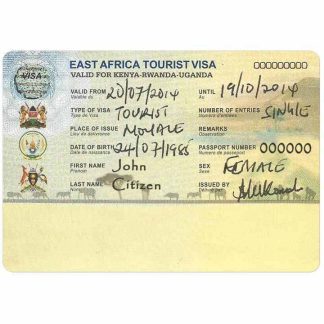 VISA
EAST AFRICA TOURIST VISA 000000000
VALID FOR KENYA-RWANDA-UGANDA
VALID FROM 20/07/2014 UNTIL 19/10/2014
Valable du Au
TYPE OF VISA TOURIST NUMBER OF ENTRIES SINGLE
Type de visa Nombre d'entrées
PLACE OF ISSUE MOYALE REMARKS
Lieu de délivrance Observation
DATE OF BIRTH 24/07/1985 PASSPORT NUMBER 000000
Date de naissance Numéro de passeport
FIRST NAME John SEX FEMALE
Prénom Sexe
LAST NAME Citizen ISSUED BY
Nom Délivré par